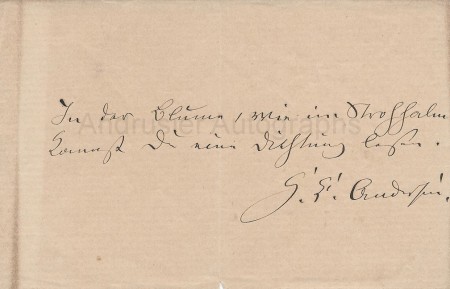 In der Blume, wie im Strohhalm
Kannst Du eine Dichtung lesen.
H. C. Andersen.
Andruster Autographs